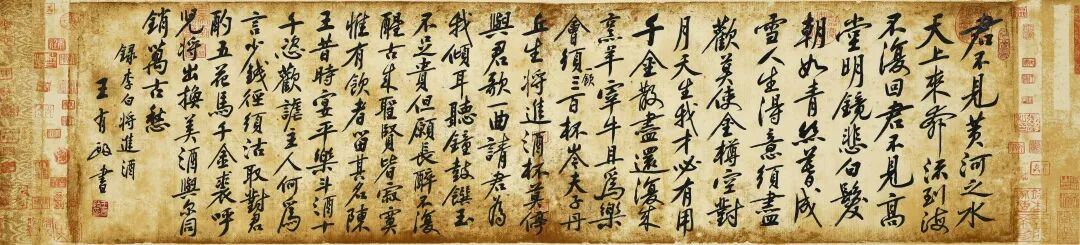 君不見黃河之水
天上來奔流到海
不復回君不見高
堂明鏡悲白髮
朝如青絲暮成
雪人生得意須盡
歡莫使金樽空對
月天生我才必有用
千金散盡還復來
烹羊宰牛且爲樂
會須飲三百杯岑夫子丹
丘生將進酒杯莫停
與君歌一曲請君爲
我傾耳聽鐘鼓饌玉
不足貴但願長醉不復
醒古來聖賢皆寂寞
惟有飲者留其名陳
王昔時宴平樂斗酒十
千恣歡謔主人何爲
言少錢徑須沽取對君
酌五花馬千金裘呼
兒將出換美酒與爾同
銷萬古愁
錄李白將進酒
王有 書